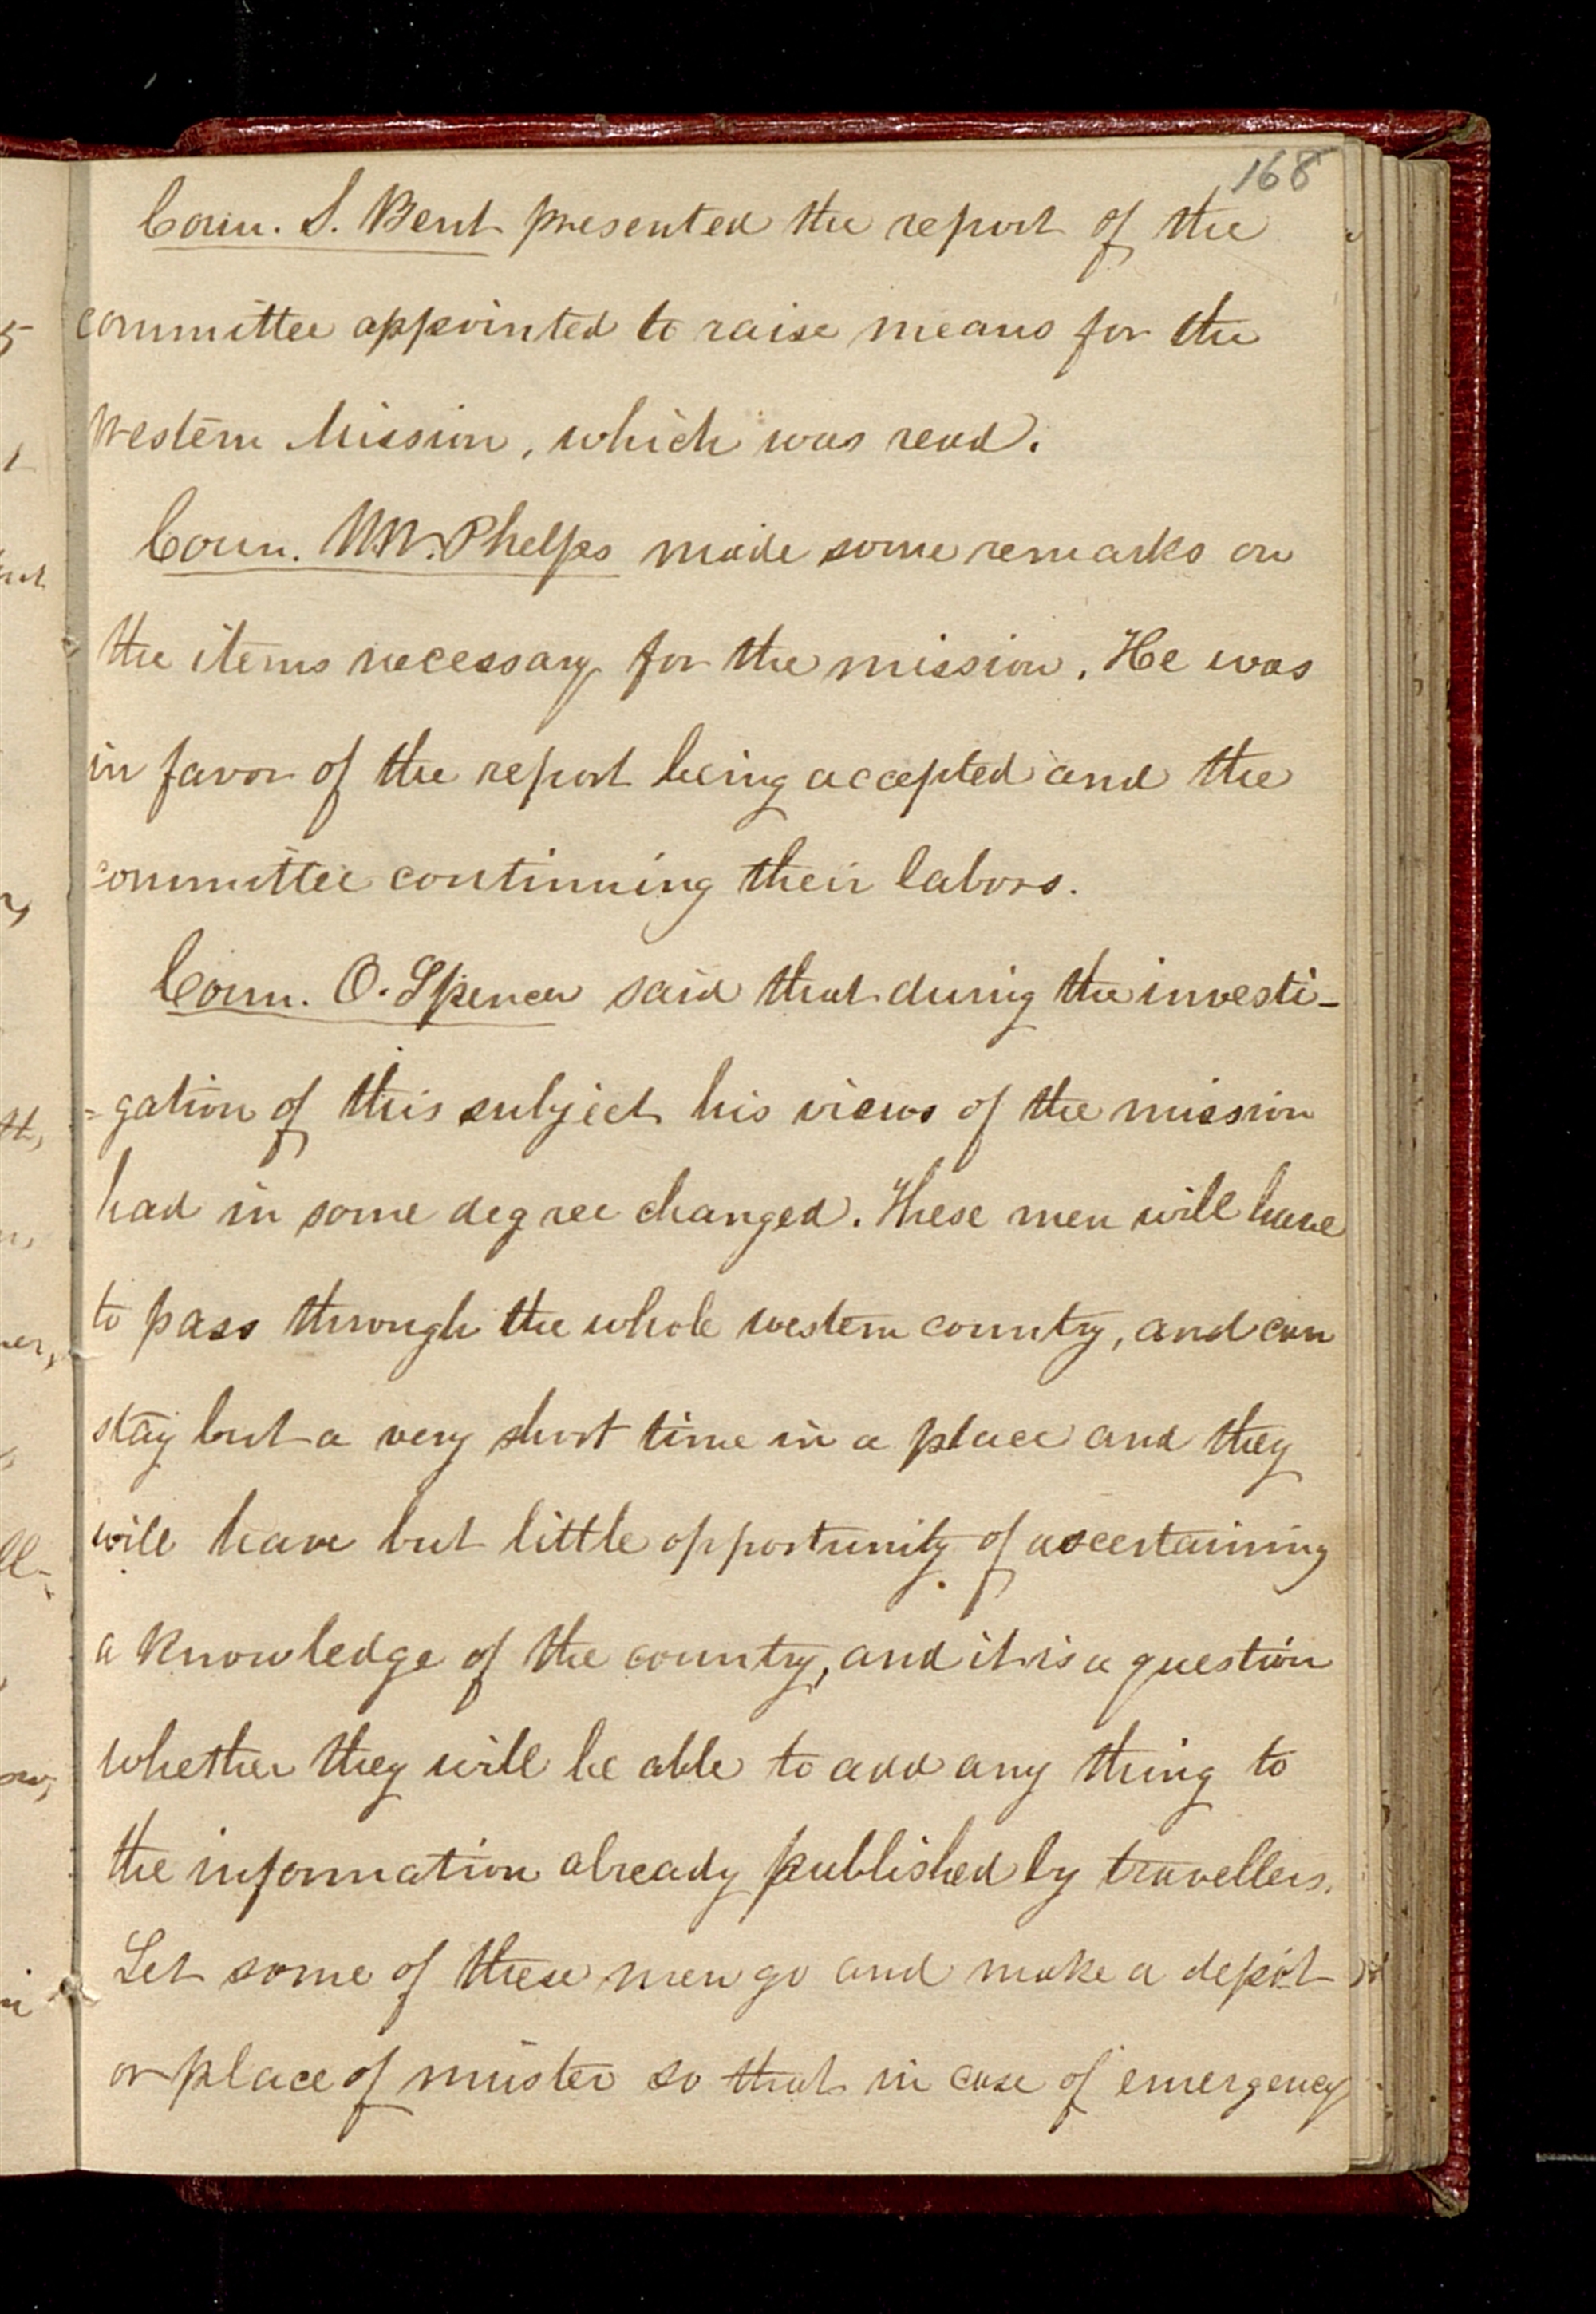 168
Coun. S. Bent presented the report of the
committee appointed to raise means for the
Western Mission, which was read.
Coun. W.W. Phelps made some remarks on
the items necessary for the mission. He was
in favor of the report being accepted and the
committee continuing their labors.
Coun. O. Spencer said that during the investi-
=gation of this subject his views of the mission
had in some degree changed. These men will have
to pass through the whole western country, and can
stay but a very short time in a place and they
will have but little opportunity of ascertaining
a knowledge of the country, and it is a question
whether they will be able to add any thing to
the information already published by travellers.
Let some of these men go and make a depot
or place of muster so that in case of emergency